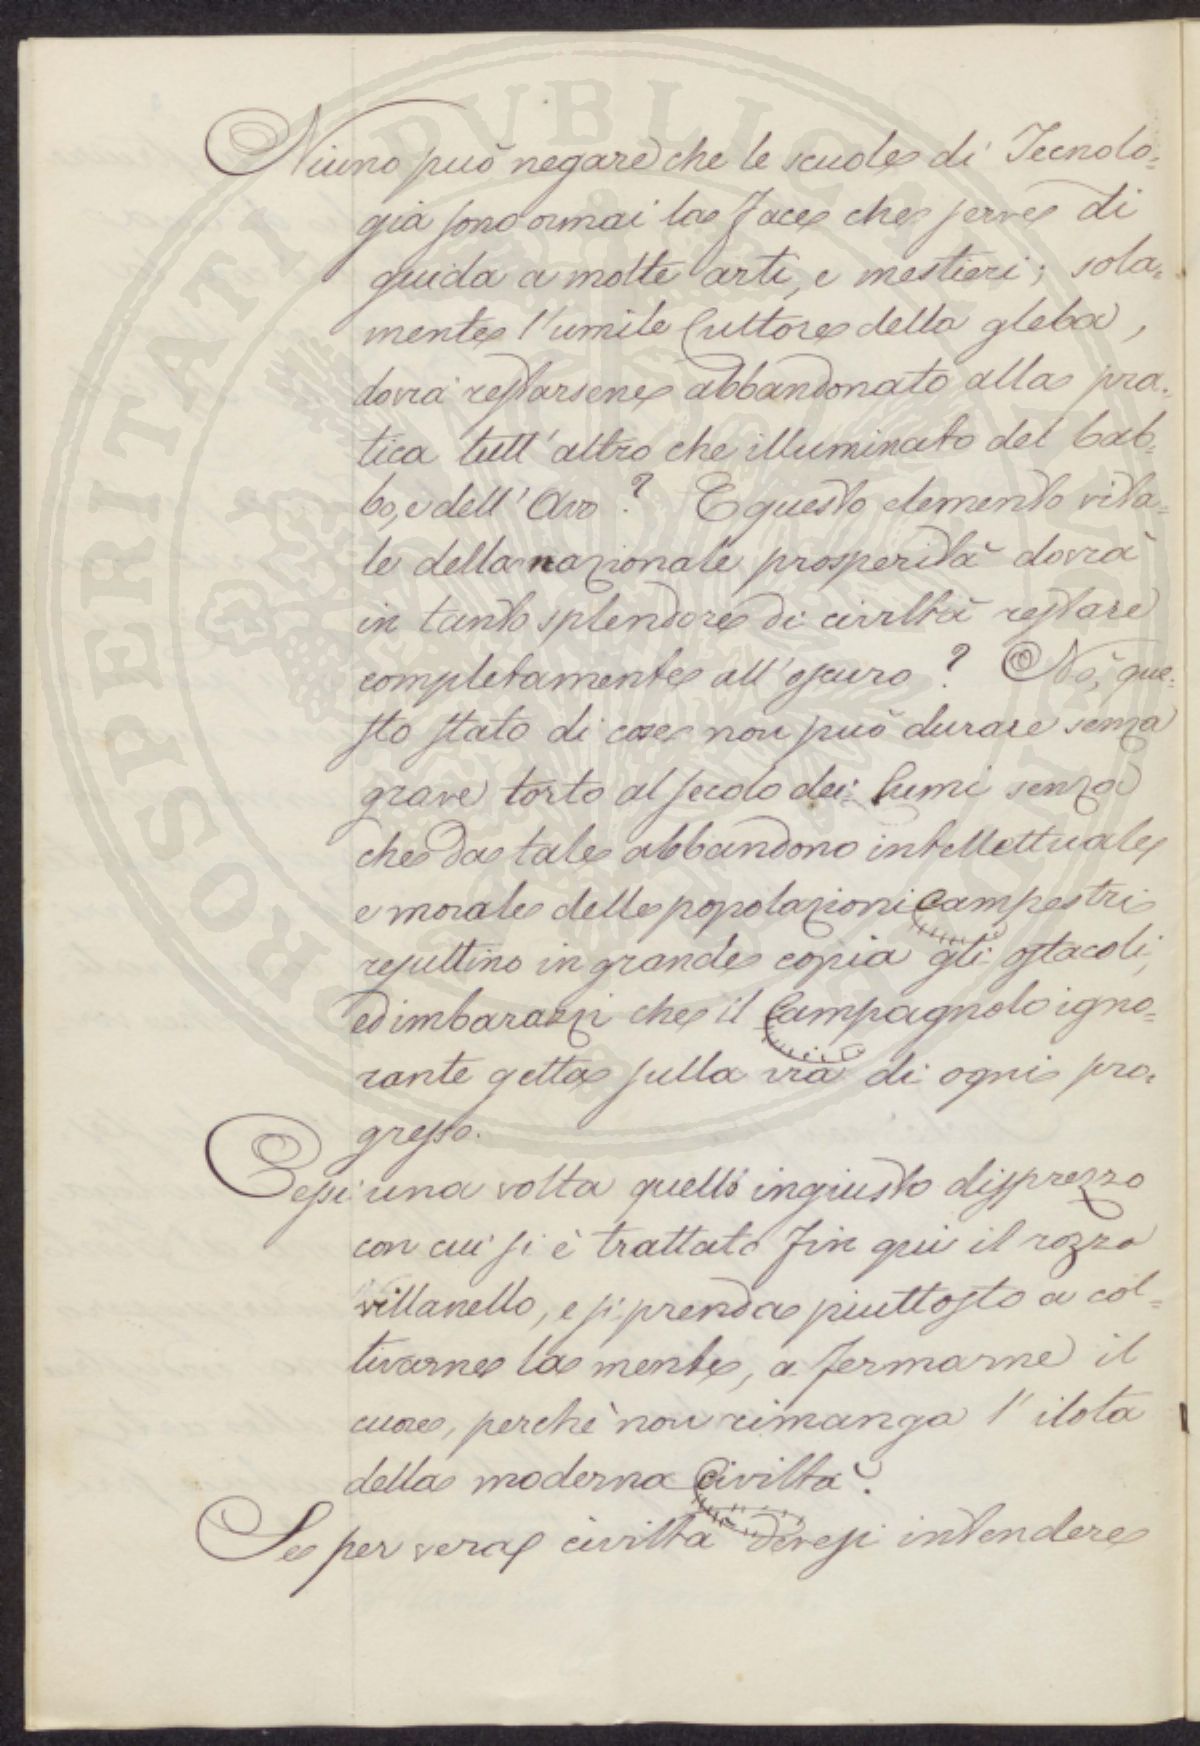 Niuno può negare che le scuole di Tecnolo=
gia sono ormai la face che serve di
guida a molte arti, e mestieri; sola=
mente l'umile Cultore della gleba,
dovrà restarsene abbandonato alla pra=
tica tutt'altro che illuminato del bab=
bo, e dell'Avo? E questo elemento vita=
le della nazionale prosperità dovrà
in tanto splendore di civiltà restare
completamente all'oscuro? Nò, que=
sto stato di cose non può durare senza
grave torto al secolo dei lumi senza
che da tale abbandono intellettuale
e morale delle popolazioni campestri
resultino in grande copia gli ostacoli,
ed imbarazzi che il Campagnolo igno=
rante getta sulla via di ogni pro=
gresso.
Cessi una volta quello ingiusto disprezzo
con cui si è trattato fin qui il rozzo
villanello, e si prenda piuttosto a col=
tivarne la mente, a fermarne il
cuore, perchè non rimanga l'ilota
della moderna Civiltà.
Se per vera civiltà devesi intendere
PROSPERITATI PVBLICAE